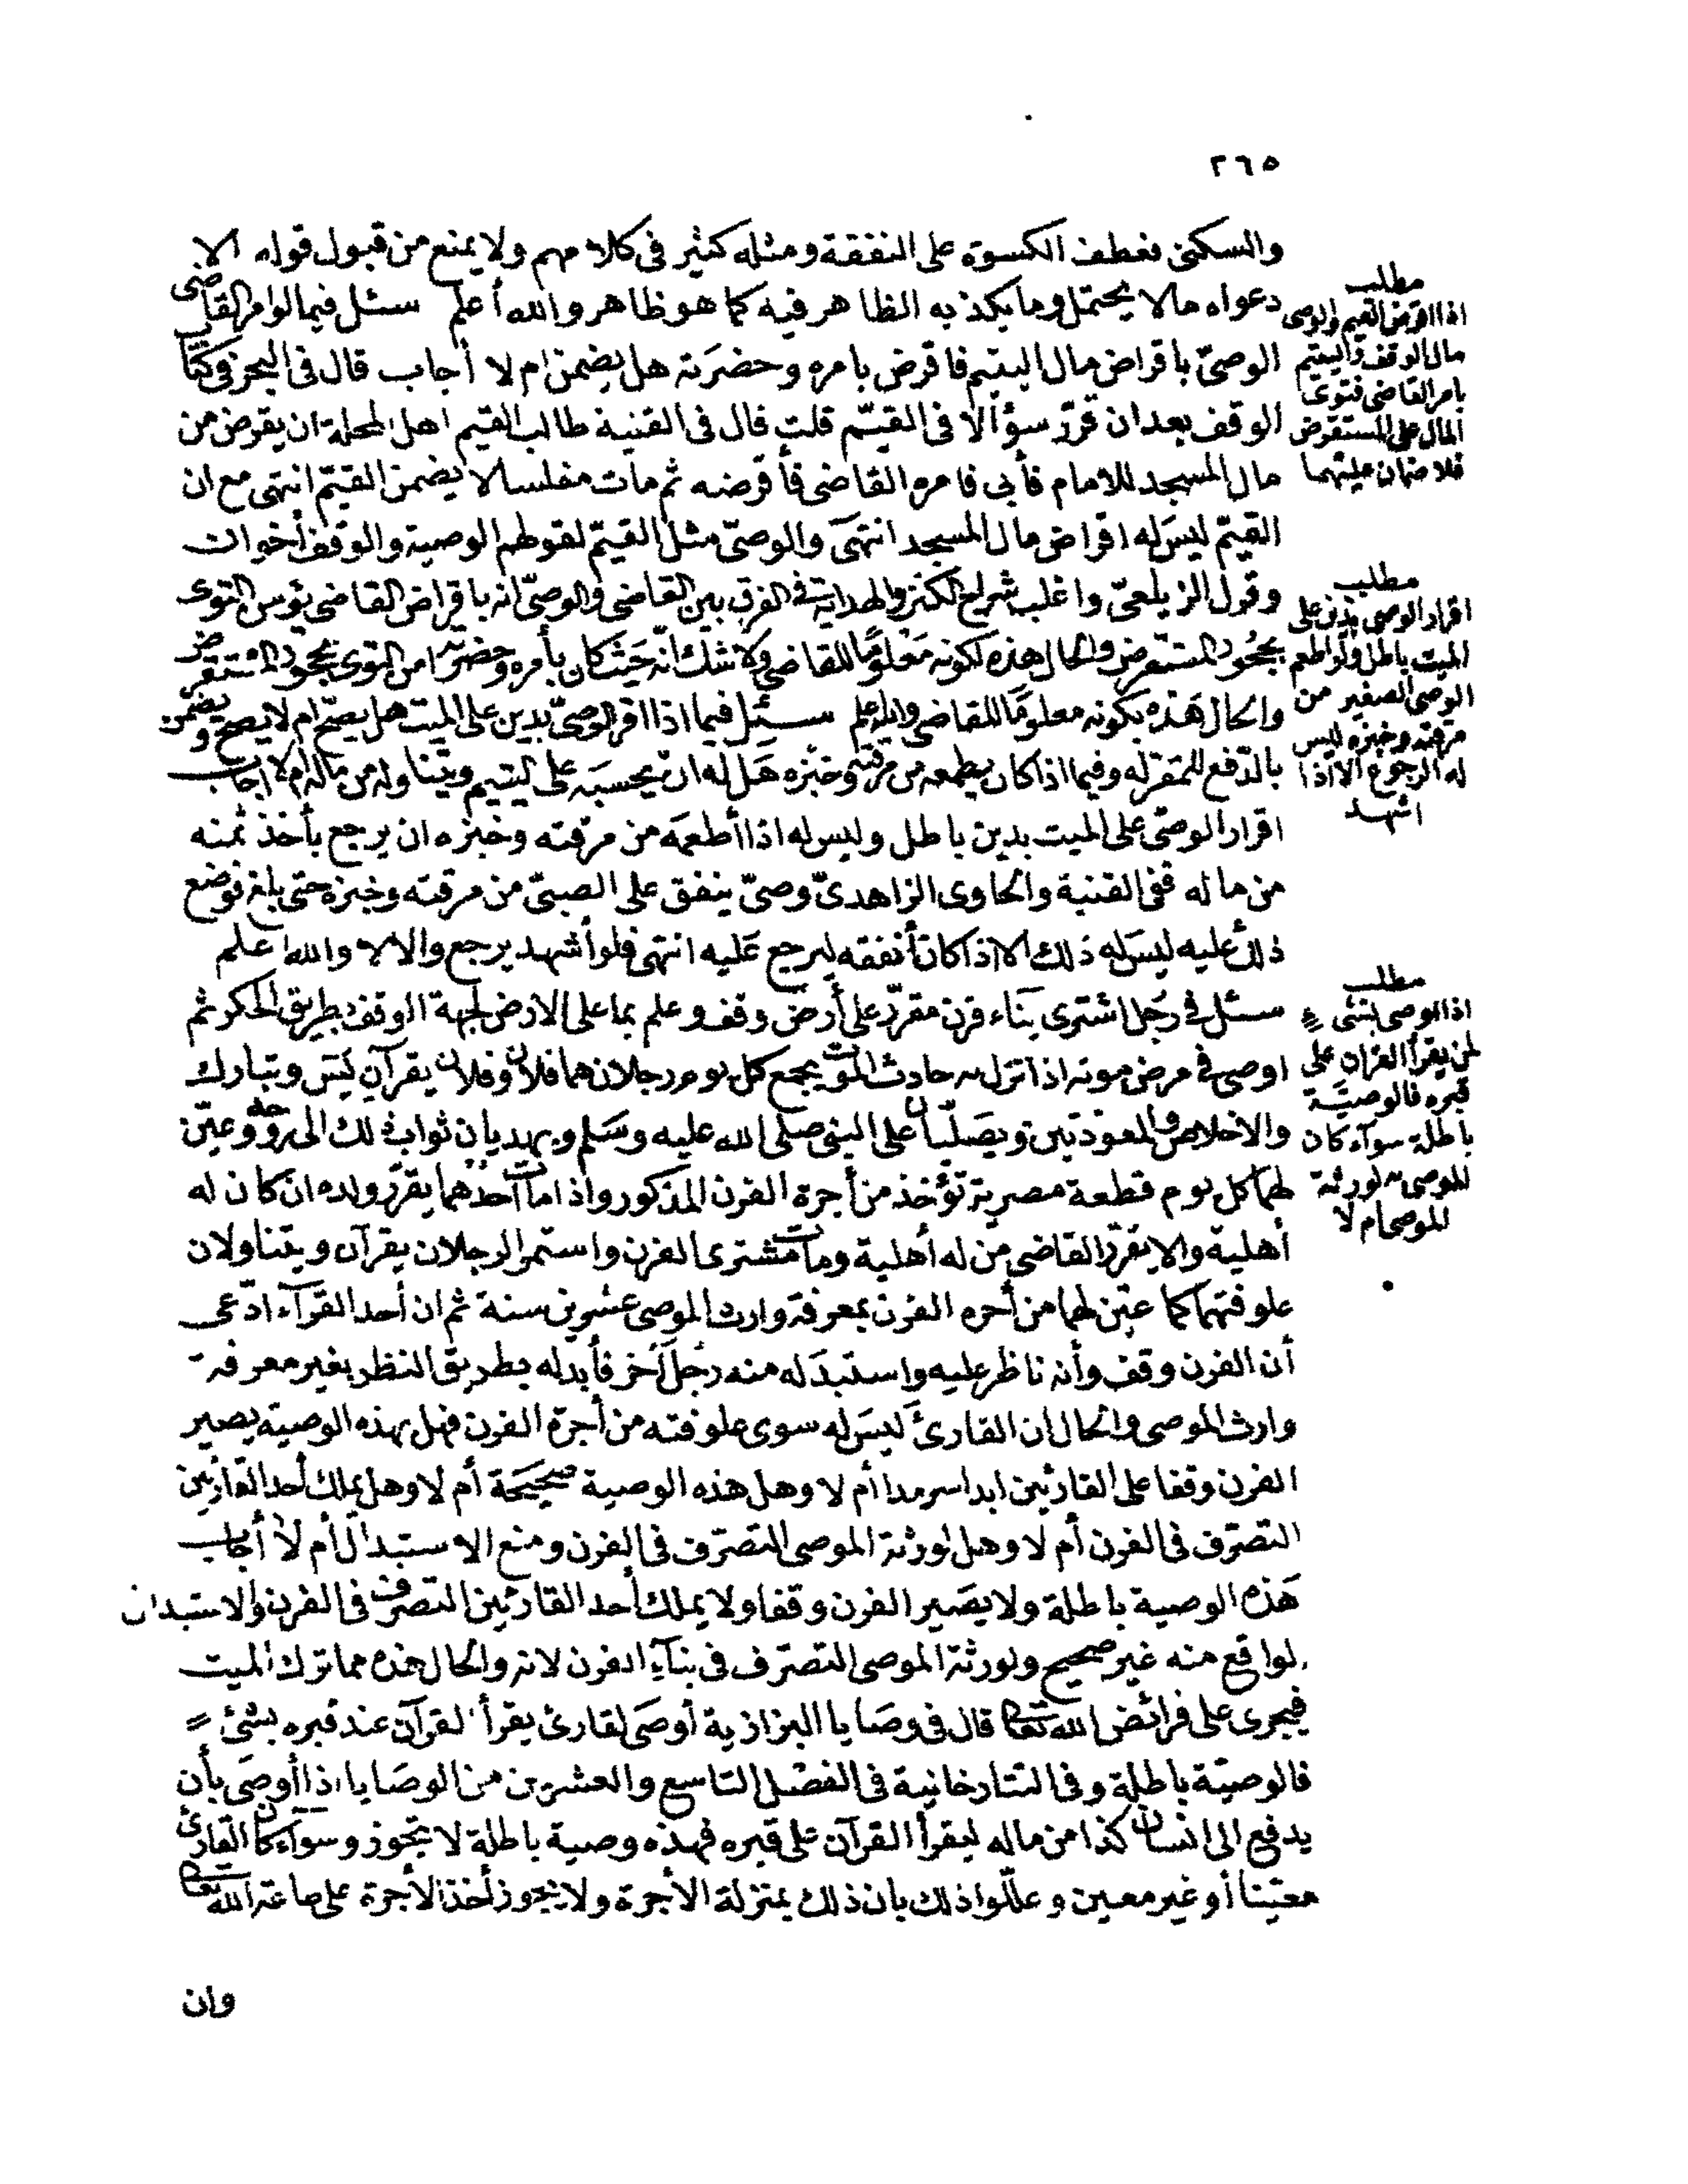 ٢٦٥
والسكنى فعطف الكسوة على النفقة ومثله كثير فى كلامهم ولا يمنع من قبول قوله الا
دعواه مالا يحتمل وما يكذبه الظاهر فيه كما هو ظاهر والله أعلم سئل فيما لو امر القاضى
الوصىّ باقراض مال اليتيم فاقرض بامره وحضرته هل يضمن ام لا أجاب قال فى البحر فى كتاب
الوقف بعد ان قرّر سؤالا فى القيّم قلت قال فى القنية طالب القيم اهل المحلة ان يقرض من
مال المسجد للامام فأبى فامره القاضى فأقرضه ثم مات مفلسا لا يضمن القيّم انتهى مع ان
القيّم ليس له اقراض مال المسجد انتهى والوصىّ مثل القيّم لقولهم الوصية والوقف أخوات
وقول الزيلعىّ واغلب شراح الكنز والهداية فى الفرق بين القاضى والوصىّ انه باقراض القاضى يؤمن التوى
بجحود المستقرض والحال هذه لكونه معلوما للقاضى ولا شك انه حيث كان بأمره وحضرته امن التوى بجحود المستقرض
والحال هذه بكونه معلوما للقاضى والله اعلم سئل فيما اذا اقر الوصىّ بدين على الميت هل يصحّ ام لا يصح ويضمن
بالدّفع للمقرّ له وفيما اذا كان يطعمه من مرقته وخبزه هل له ان يحسبه على اليتيم ويتناوله من ماله ام لا اجاب
اقرار الوصىّ على الميت بدين باطل وليس له اذا أطعمه من مرقته وخبزه ان يرجع بأخذ ثمنه
من ماله ففى القنية والحاوى الزاهدىّ وصىّ ينفق على الصبىّ من مرقته وخبزه حتى بلغ فوضع
ذلك عليه ليس له ذلك الا اذا كان أنفقه ليرجع عليه انتهى فلو أشهد يرجع والا لا والله اعلم
سئل فى رجل اشترى بناء فرن مقرّر على أرض وقف وعلم بما على الارض لجهة الوقف بطريق الحكر ثم
اوصى فى مرض موته اذا نزل به حادث الموت يجمع كل يوم رجلان هما فلان وفلان يقرآن يٓس وتبارك
والاخلاص والمعوذتين ويصلّيان على النبى صلى الله عليه وسلم ويهديان ثواب ذلك الى روحه وعيّن
لهما كل يوم قطعة مصرية تؤخذ من أجرة الفرن المذكور واذا مات أحدهما يقرّر ولده ان كان له
أهلية والا يقرّر القاضى من له أهلية ومات مشترى الفرن واستمر الرجلان يقرآن ويتناولان
علوفتهما كما عيّن لهما من أجره الفرن بمعرفة وارث الموصى عشرين سنة ثم ان أحد القرآء ادّعى
أن الفرن وقف وأنه ناظر عليه واستبدله منه رجل آخر فأبدله بطريق النظر بغير معرفة
وارث الموصى والحال ان القارئ ليس له سوى علوفته من أجرة الفرن فهل بهذه الوصية يصير
الفرن وقفا على القارئين ابدا سرمدا أم لا وهل هذه الوصية صحيحة أم لا وهل يملك أحد القارئين
التصرّف فى الفرن أم لا وهل لورثة الموصى التصرّف فى الفرن ومنع الاستبدال أم لا أجاب
هذه الوصية باطلة ولا يصير الفرن وقفا ولا يملك أحد القارئين التصرف فى الفرن والاستبدال
الواقع منه غير صحيح ولورثة الموصى التصرّف فى بنآء الفرن لانه والحال هذه مما ترك الميت
فيجرى على فرائض الله تعالى قال فى وصايا البزازية أوصى لقارئ يقرأ القرآن عند قبره بشئ
فالوصيّة باطلة وفى التتارخانية فى الفصل التاسع والعشرين من الوصايا اذا أوصى بأن
يدفع الى انسان كذا من ماله ليقرأ القرآن على قبره فهذه وصية باطلة لا تجوز وسوآء كان القارئ
معيّنا أو غير معين وعلّلوا ذلك بان ذلك بمنزلة الأجرة ولا يجوز أخذ الأجرة على طاعة الله تعالى
وان
مطلب
اذا اقرض القيم والوصى
مال الوقف واليتيم
بامر القاضى فتوى
المال على المستقرض
فلا ضمان عليهما
مطلب
اقرار الوصى بدين على
الميت باطل ولو اطعم
الوصى الصغير من
مرقته وخبزه ليس
له الرجوع الا اذا
اشهد
مطلب
اذا اوصى بشئ
لمن يقرأ القران على
قبره فالوصيّة
باطلة سوآء كان
الموصى به لورثة
الموصى ام لا